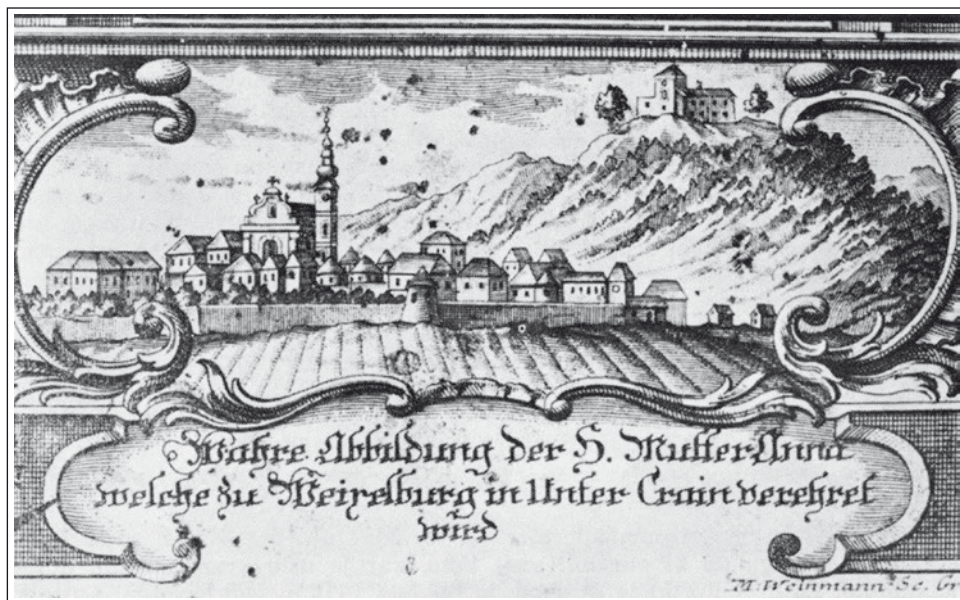 Wahre Abbildung der H. Mutter Anna
welche zu Weixelburg in Unter Crain verehret
wird
M. Weinmann Sc. Gr